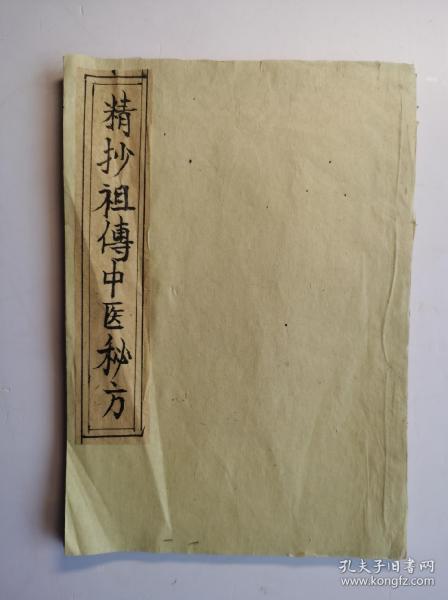 精抄祖傳中医秘方
孔夫子旧书网
www.kongfz.com